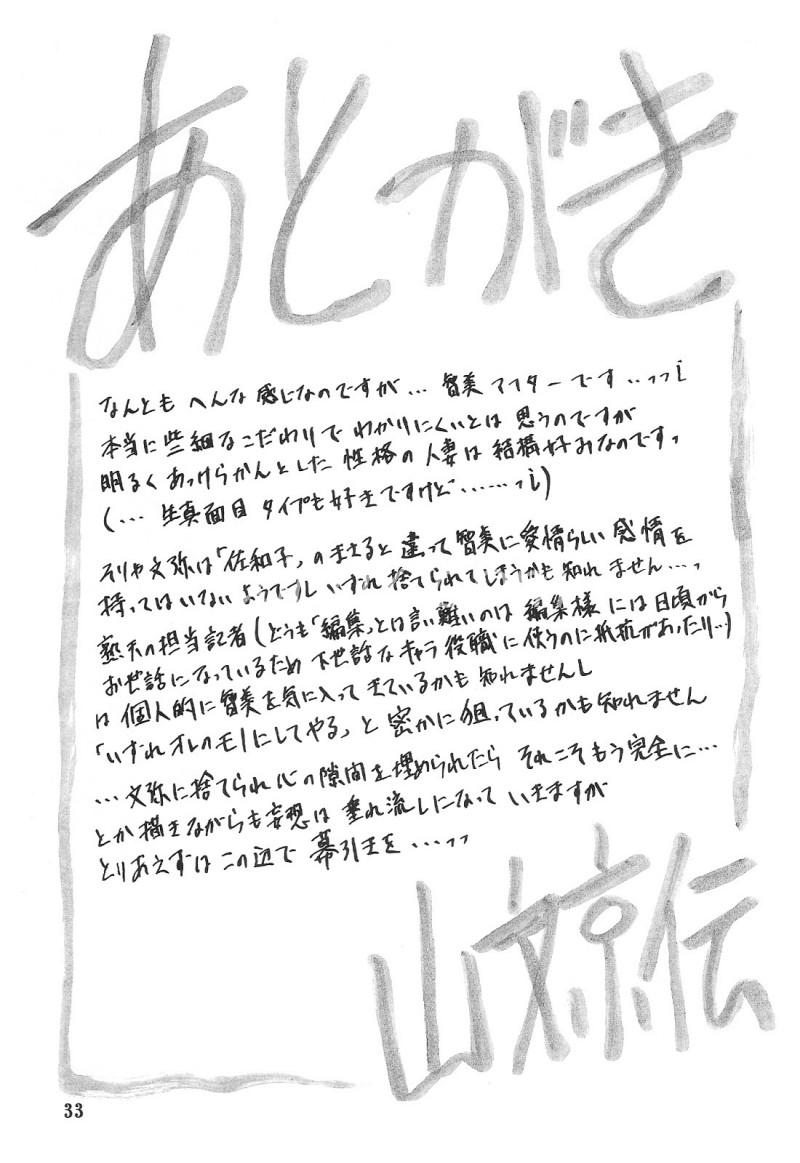 あとがき
なんとも へんな 感じなのですが… 智美 アフターです‥ッッi
本当に些細なこだわりで わかりにくいとは 思うのですが
明るく あっけらかんとした 性格の 人妻は 結構好みなのですッ
(… 生真面目 タイプも好きですけど……ッi)
そりゃ文弥は「佐和子」の まさると 違って 智美に愛情らしい 感情を
持ってはいない ようですし いずれ 捨てられてしまうかも 知れ ません…ッ
の担当記者(どうも「編集」とは言い難いのは 編集様には日頃から
お世話になっているため 下世話なキャラ 役職に 使うのに抵抗があったり…)
は 個人的に 智美を気に入って きているかも 知れませんし
「いずれオレのモノにしてやる」と 密かに 狙っているかも知れません
… 文弥に捨てられ 心の隙間を埋められたら それこそもう完全に…
とか描きながらも妄想は 垂れ流しになって いきますが
とりあえずは この辺で 幕引きを…ッッ
山文京伝
33